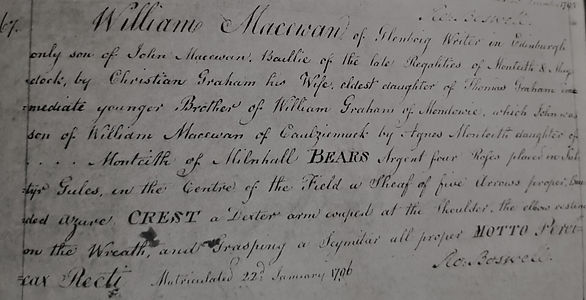 Ro. Boswell.
67. William Macewan of Glenboig Writer in Edinburgh
only son of John Macewan, Baillie of the late Regalities of Monteith &
dock, by Christian Graham his Wife, eldest daughter of Thomas Graham
mediate younger Brother of William Graham of Mondowie, which John was
son of William Macewan of Cauldziemuck by Agnes Monteith daughter of
. . . . Monteith of Milnhall BEARS Argent four Roses placed in Sal-
tyr Gules, in the Centre of the Field a Sheaf of five Arrows proper,
ded azure. CREST a Dexter arm couped at the Shoulder, the elbow resting
on the Wreath, and Grasping a Scymitar all proper MOTTO Pervi-
cax Recti Matriculated 22d. January 1796
Ro. Boswell.